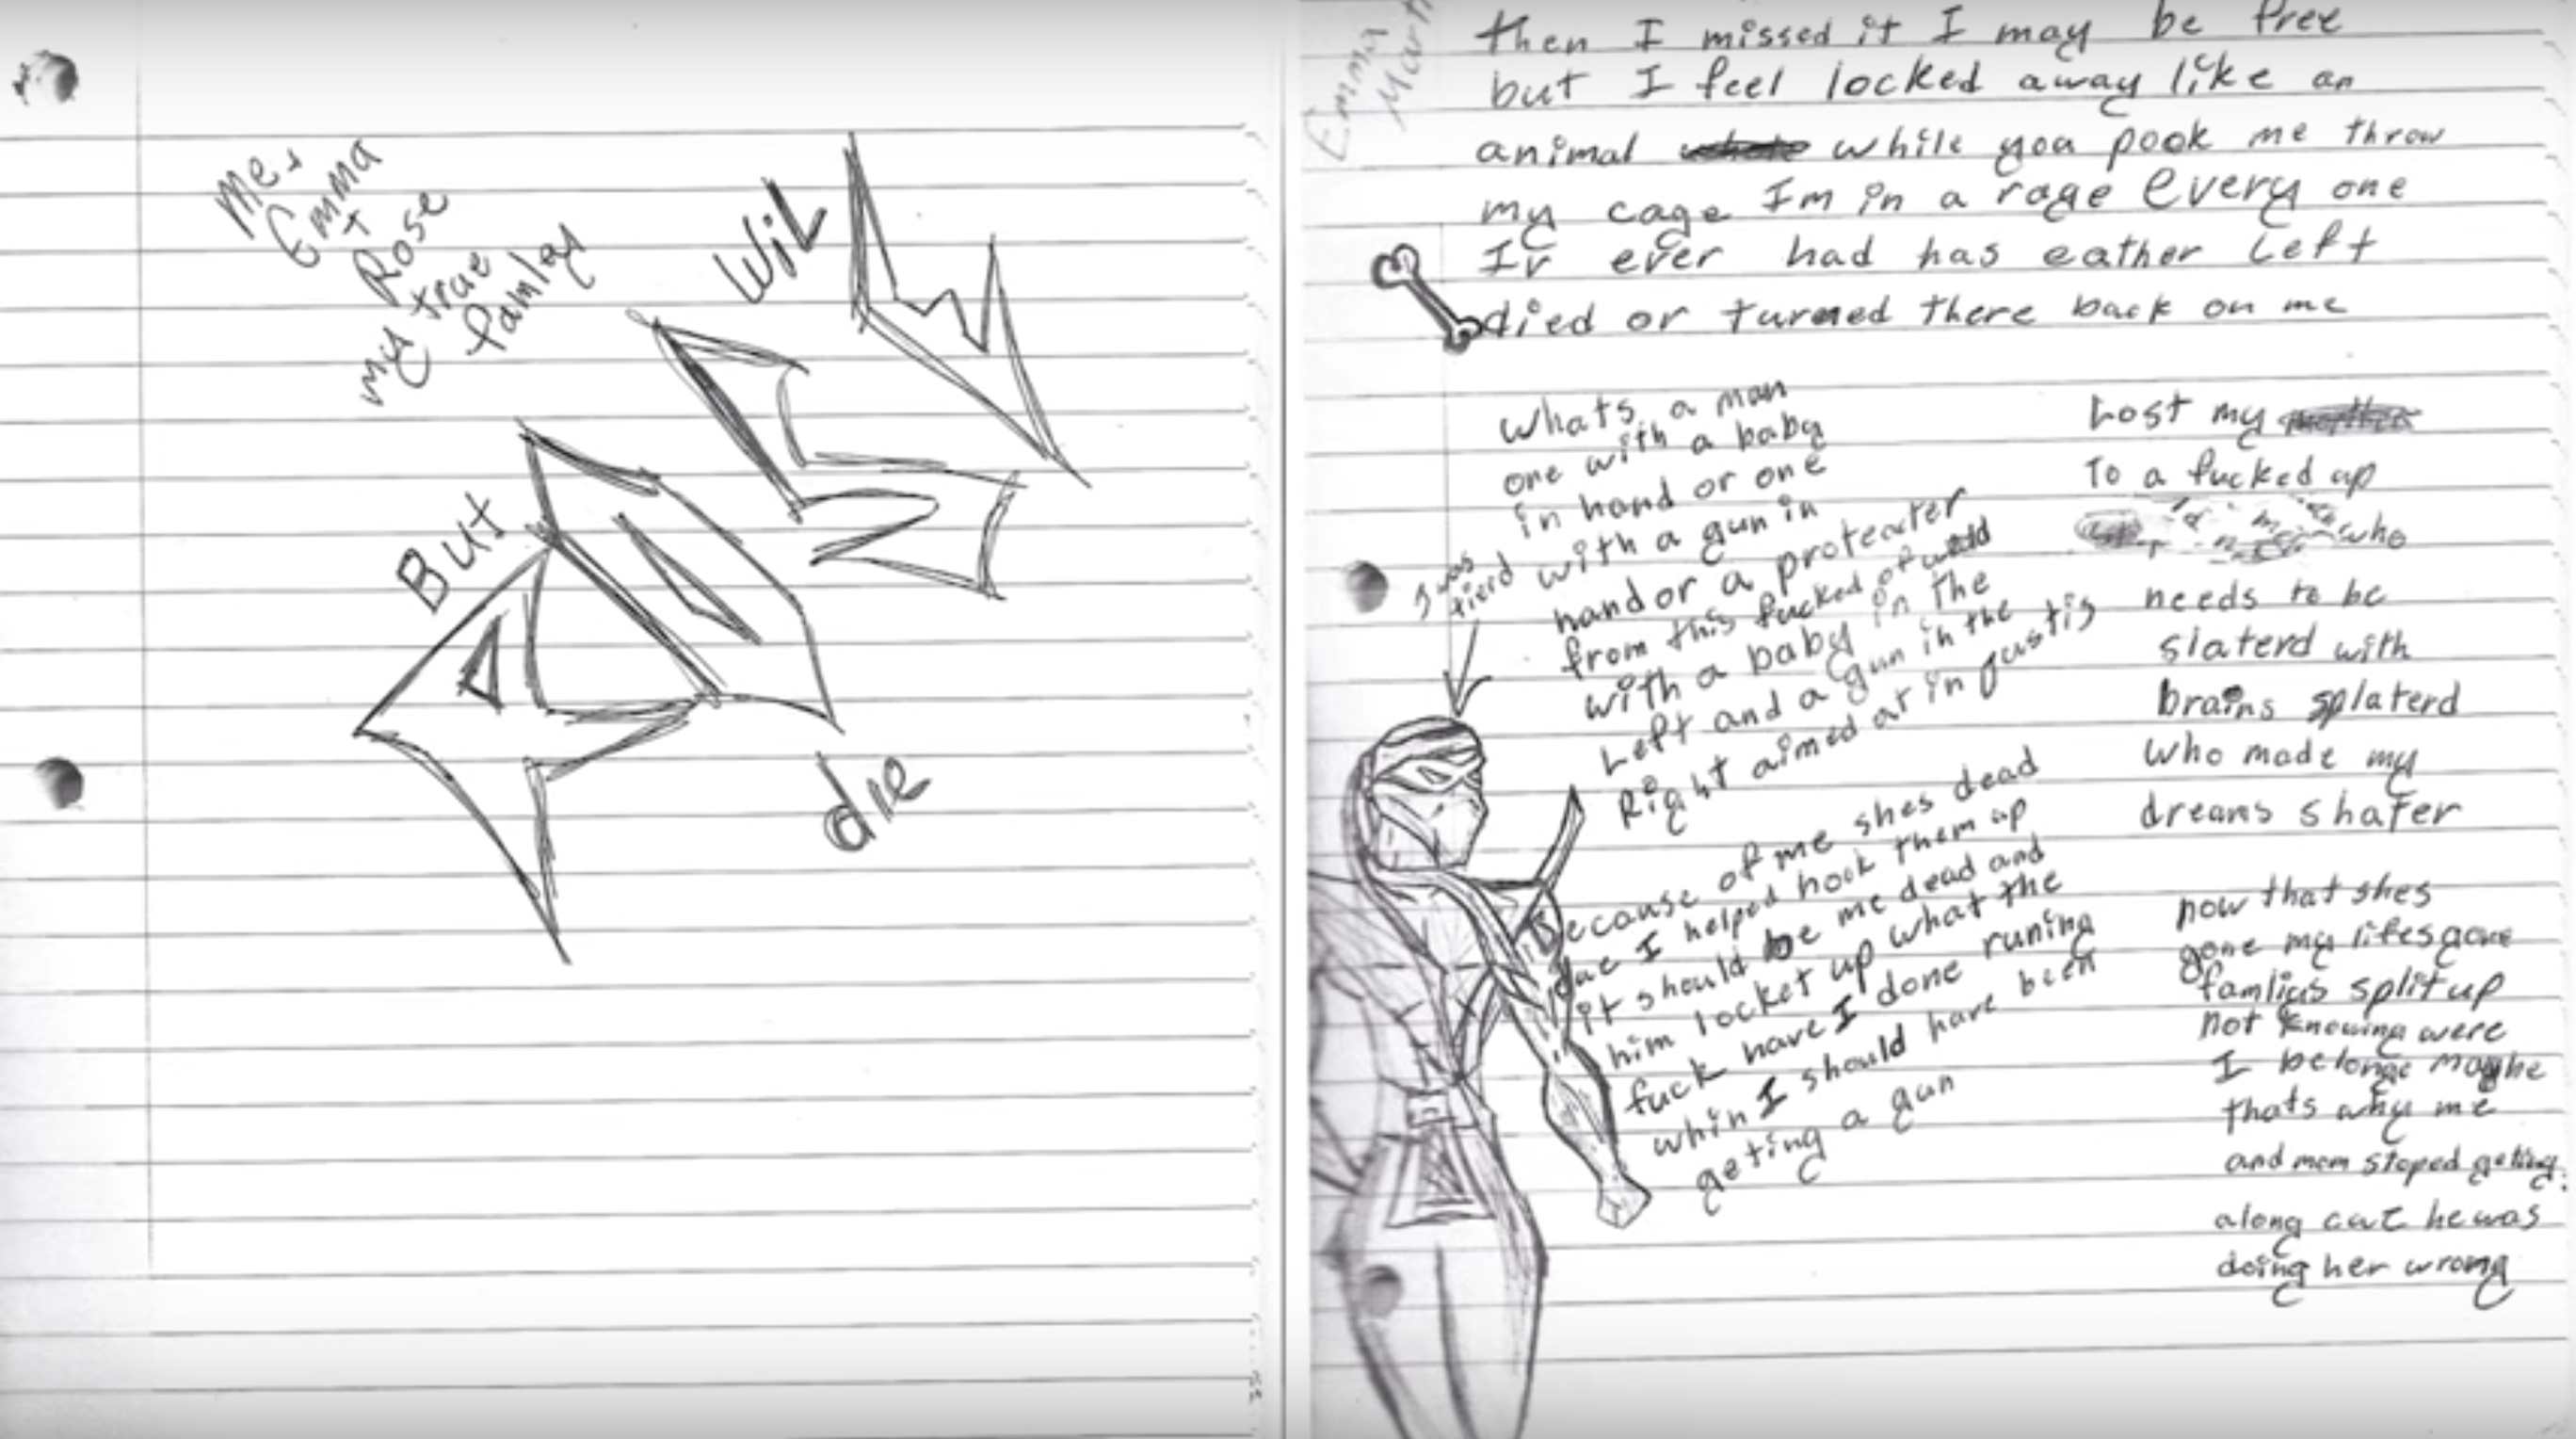 Me +
Emma
+
Rose
my true
famley
But
Wil
die
Emma
then I missed it I may be free
but I feel locked away like an
animal while you pook me throw
my cage Im in a rage every one
Iv ever had has eather Left
died or turned there back on me
Whats a man
one with a baby
in hand or one
with a gun in
hand or a proteater
from this fucked of world
with a baby in the
Left and a gun in the
Right aimed at in justis
I was
tierd
Because of me shes dead
I helped hook them up
it should be me dead and
him locket up what the
fuck have I done runing
whin I should have been
geting a gun
Lost my
To a fucked up
who
needs to be
slaterd with
brains splaterd
Who made my
dreams shater
now that shes
gone my lifes gone
famlies split up
not knowing were
I belonge maybe
thats why me
and mom stoped geting
along cuz he was
doing her wrong